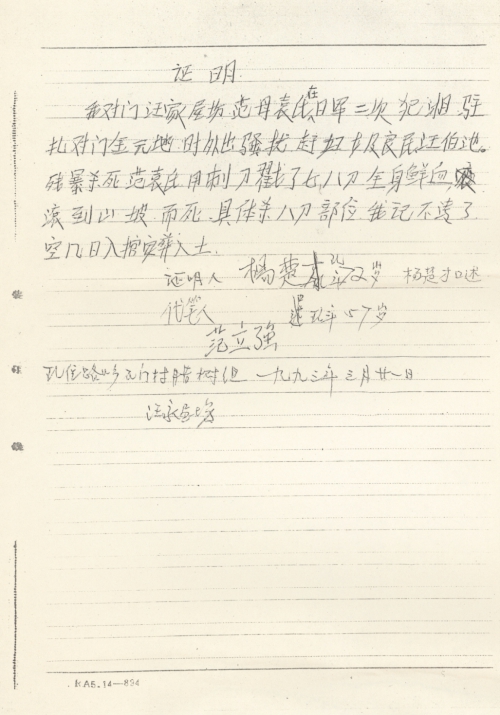 证 明
我对门汪家屋场范母袁氏在日军二次犯湘驻
扎对门金元地时外出骚扰赶妇女及良民汪伯池
残暴杀死范袁氏用刺刀戳了七八刀全身鲜血
滚到山坡而死具体杀八刀部位我记不清了
空几日入棺安葬入土
证明人 杨楚才 现年 岁 杨楚才口述
代笔人 现年57岁
范立强
现住 乡 村 树组 一九九三年三月廿一日
汪家屋场
KAB.14—894